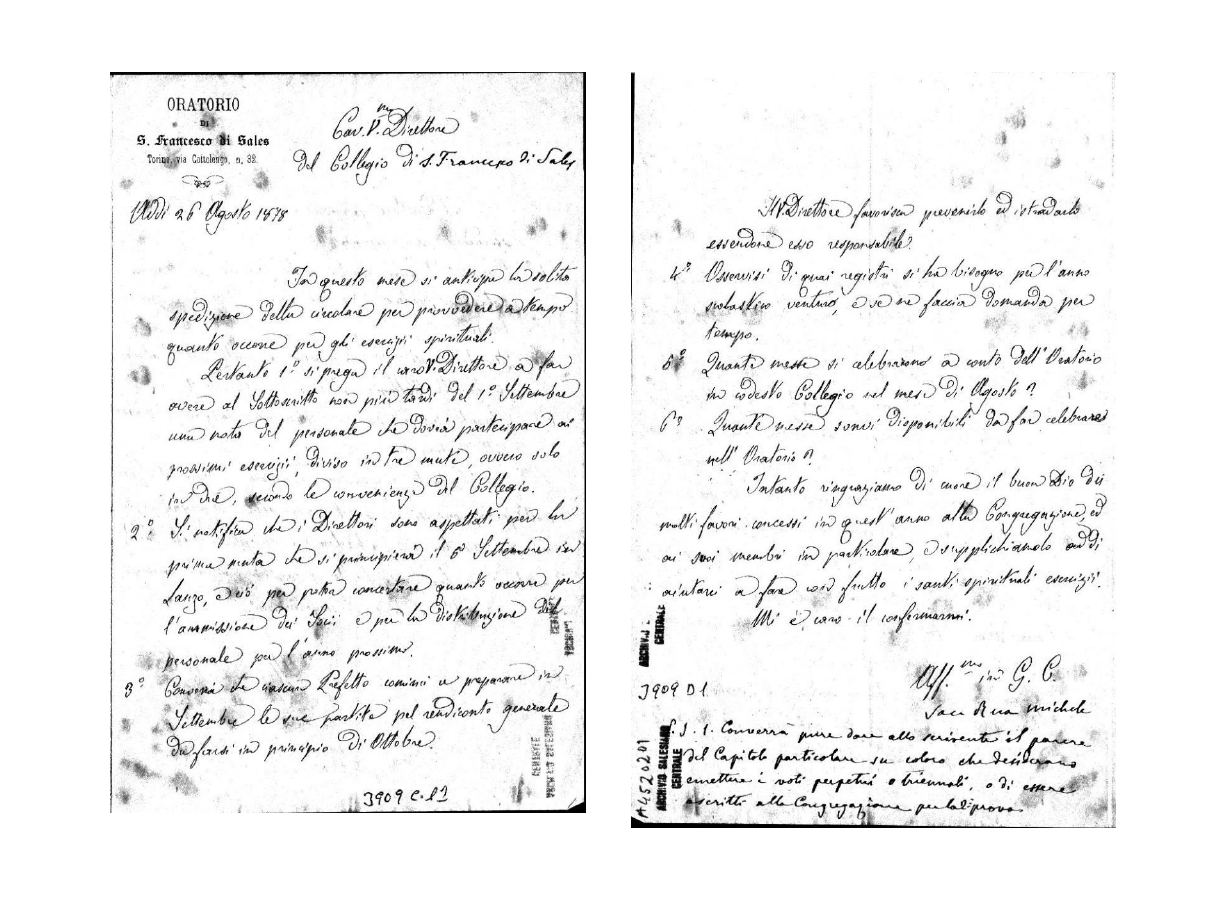 ORATORIO
DI
S. Francesco di Sales
Torino, via Cottolengo, n, 32.
Car.mo V. Direttore
del Collegio di S. Francesco di Sales
Addì 26 Agosto 1878
In questo mese si anticipa la solita
spedizione della circolare per provvedere a tempo
quanto occorre per gli esercizii spirituali.
Pertanto 1º si prega il caro V. Direttore a far
avere al Sottoscritto non più tardi del 1º Settembre
una nota del personale che dovrà partecipare ai
prossimi esercizii, diviso in tre mute, ovvero solo
in due, secondo le convenienze del Collegio.
2º Si notifica che i Direttori sono aspettati per la
prima muta che si principierà il 6 Settembre in
Lanzo, e ciò per poter concertare quanto occorre per
l'ammissione dei Socii e per la distribuzione del
personale per l'anno prossimo.
3º Converrà che ciascun Prefetto cominci a preparare in
Settembre le sue partite pel rendiconto generale
da farsi in principio di Ottobre.
ARCHIVIO SALESIANO
CENTRALE
3909 C. 11
Il V. Direttore favorisca prevenirlo ed istradarlo
essendone esso responsabile.
4º Osservisi di quai registri si ha bisogno per l'anno
scolastico venturo, e se ne faccia domanda per
tempo.
5º Quante messe si celebrarono a conto dell'Oratorio
in codesto Collegio nel mese di Agosto?
6º Quante messe sonvi disponibili da far celebrare
nell'Oratorio?
Intanto ringraziamo di cuore il buon Dio dei
molti favori concessi in quest'anno alla Congregazione, ed
ai suoi membri in particolare, e supplichiamolo ad
aiutarci a fare con frutto i santi spirituali esercizii.
Mi è caro il confermarmi.
Aff.mo in G. C.
Sac. Rua Michele
3909 D 1
P. S. 1. Converrà pure dare allo scrivente il parere
del Capitolo particolare su coloro che desiderano
emettere i voti perpetui o triennali, o di essere
ascritti alla Congregazione per la prova.
ARCHIVIO
CENTRALE
ARCHIVIO SALESIANO
CENTRALE
A4520201